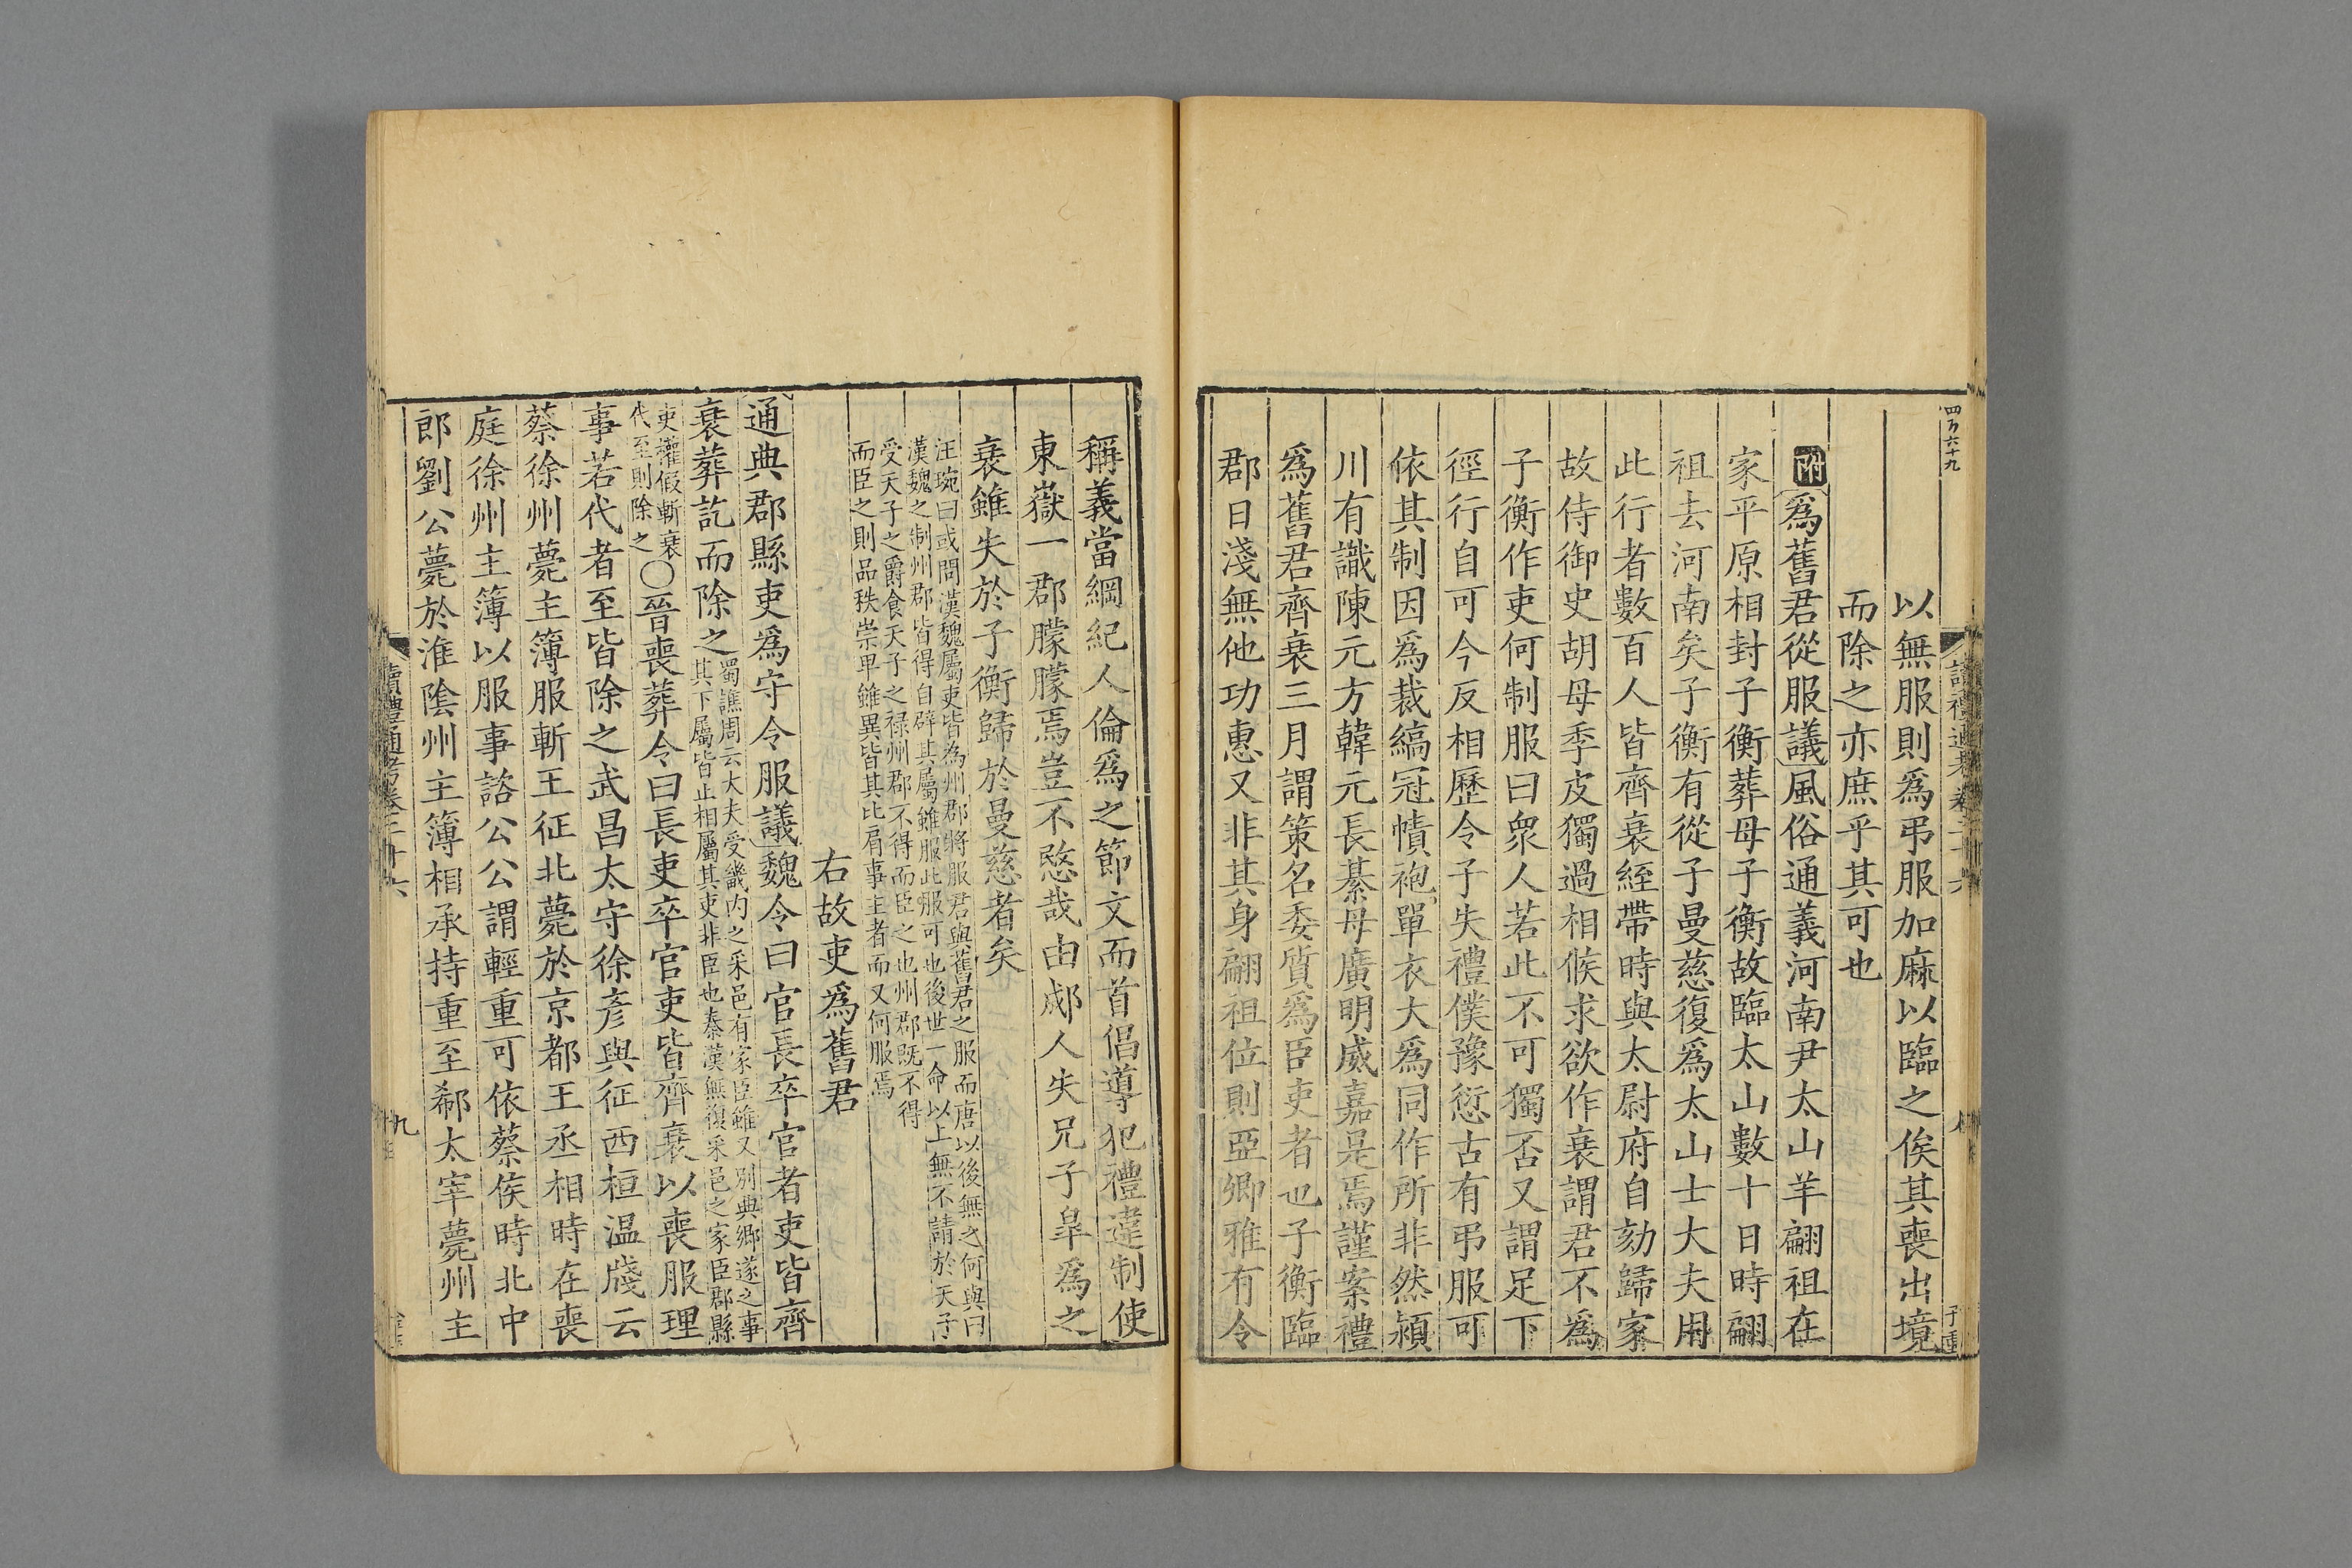 四万六十九
以無服則爲弔服加麻以臨之俟其喪出境
而除之亦庶乎其可也
附爲舊君從服議風俗通義河南尹太山羊翩祖在
家平原相封子衡葬母子衡故臨太山數十日時翩
祖去河南矣子衡有從子曼慈復爲太山士大夫用
此行者數百人皆齊衰絰帶時與太尉府自劾歸家
故侍御史胡母季皮獨過相候求欲作衰謂君不爲
子衡作吏何制服曰衆人若此不可獨否又謂足下
徑行自可今反相歷令子失禮僕豫愆古有弔服可
依其制因爲裁縞冠幘袍單衣大爲同作所非然潁
川有識陳元方韓元長綦母廣明咸嘉是焉謹案禮
爲舊君齊衰三月謂策名委質爲臣吏者也子衡臨
郡日淺無他功惠又非其身翩祖位則亞卿雅有令
稱義當綱紀人倫爲之節文而首倡導犯禮違制使
東嶽一郡朦朦焉豈不愍哉由郕人失兄子皐爲之
衰雖失於子衡歸於曼慈者矣
汪琬曰或問漢魏屬吏皆為州郡將服君與舊君之服而唐以後無之何與曰
漢魏之制州郡皆得自辟其屬雖服此服可也後世一命以上無不請於天子
受天子之爵食天子之禄州郡不得而臣之也州郡既不得
而臣之則品秩崇卑雖異皆其比肩事主者而又何服焉
右故吏爲舊君
通典郡縣吏爲守令服議魏令曰官長卒官者吏皆齊
衰葬訖而除之蜀譙周云大夫受畿内之采邑有家臣雖又别典鄉遂之事
其下屬皆止相屬其吏非臣也秦漢無復采邑之家臣郡縣
吏權假斬衰
代至則除之○晉喪葬令曰長吏卒官吏皆齊衰以喪服理
事若代者至皆除之武昌太守徐彦與征西桓温牋云
蔡徐州薨主簿服斬王征北薨於京都王丞相時在喪
庭徐州主簿以服事諮公公謂輕重可依蔡侯時北中
郎劉公薨於淮陰州主簿相承持重至郗太宰薨州主
讀禮通考卷三十六
九